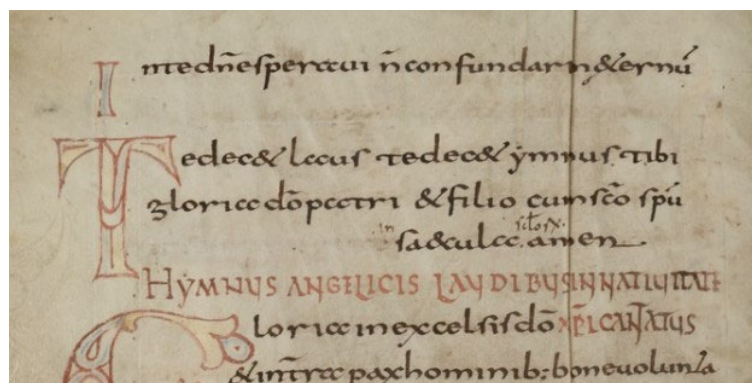 In te dn̄e speraui n̄ confundar in &ernū
Te dec& laus te dec& ẏmnus tibi
gloria dō patri & filio cum sc̄o spū
in saecula scl̄osx̄. amen
HẎMNUS ANGELICIS LAUDIBUS IN NATIUITATE
Gloria in excelsis dō XP̄I CANTATUS
& in terra pax hominib: bone uolunta